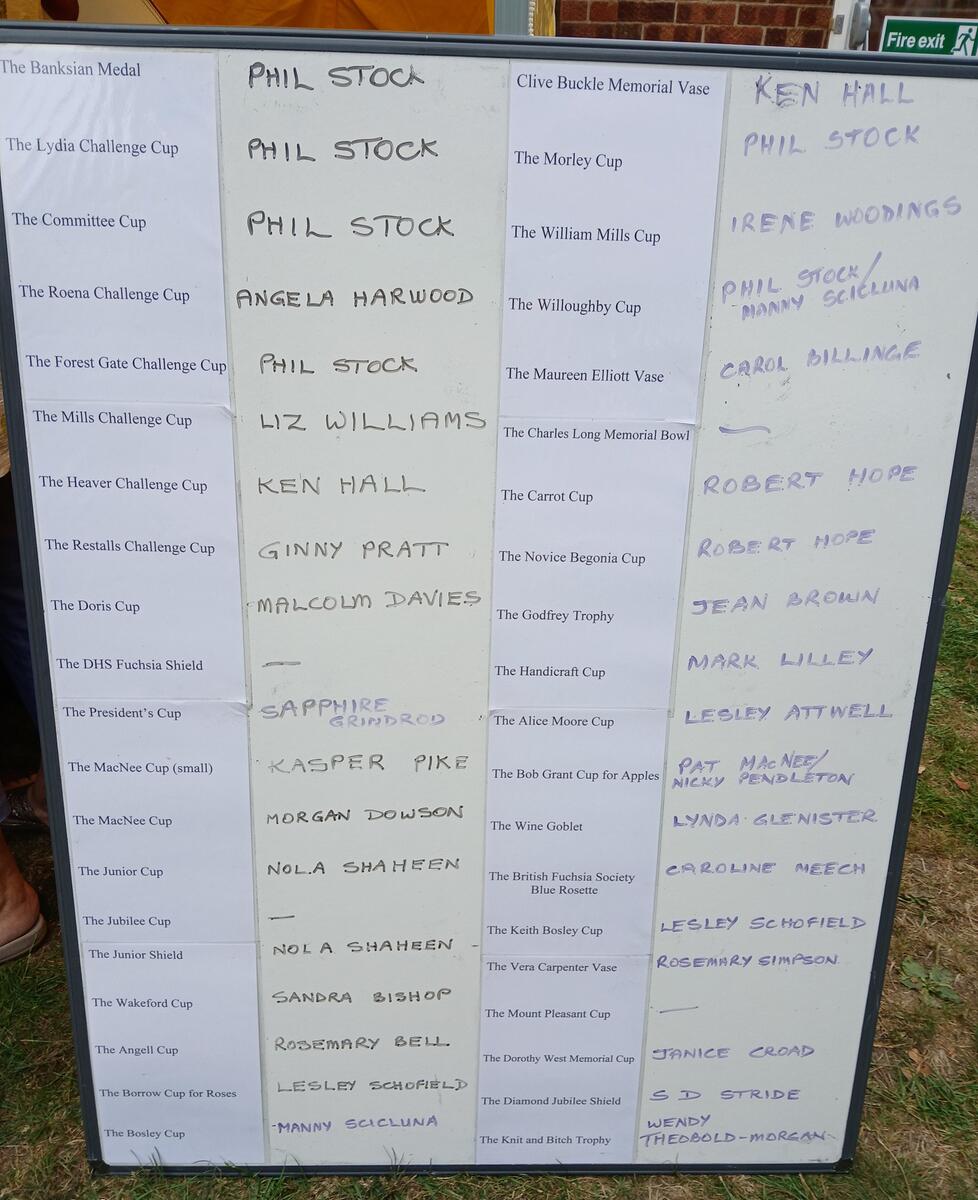 Fire exit
The Banksian Medal PHIL STOCK
The Lydia Challenge Cup PHIL STOCK
The Committee Cup PHIL STOCK
The Roena Challenge Cup ANGELA HARWOOD
The Forest Gate Challenge Cup PHIL STOCK
The Mills Challenge Cup LIZ WILLIAMS
The Heaver Challenge Cup KEN HALL
The Restalls Challenge Cup GINNY PRATT
The Doris Cup MALCOLM DAVIES
The DHS Fuchsia Shield —
The President's Cup SAPPHIRE
GRINDROD
The MacNee Cup (small) KASPER PIKE
The MacNee Cup MORGAN DOWSON
The Junior Cup NOLA SHAHEEN
The Jubilee Cup —
The Junior Shield NOLA SHAHEEN
The Wakeford Cup SANDRA BISHOP
The Angell Cup ROSEMARY BELL
The Borrow Cup for Roses LESLEY SCHOFIELD
The Bosley Cup MANNY SCICLUNA
Clive Buckle Memorial Vase KEN HALL
The Morley Cup PHIL STOCK
The William Mills Cup IRENE WOODINGS
The Willoughby Cup PHIL STOCK/
MANNY SCICLUNA
The Maureen Elliott Vase CAROL BILLINGE
The Charles Long Memorial Bowl —
The Carrot Cup ROBERT HOPE
The Novice Begonia Cup ROBERT HOPE
The Godfrey Trophy JEAN BROWN
The Handicraft Cup MARK LILLEY
The Alice Moore Cup LESLEY ATTWELL
The Bob Grant Cup for Apples PAT MACNEE/
NICKY PENDLETON
The Wine Goblet LYNDA GLENISTER
The British Fuchsia Society CAROLINE MEECH
Blue Rosette
The Keith Bosley Cup LESLEY SCHOFIELD
The Vera Carpenter Vase ROSEMARY SIMPSON
The Mount Pleasant Cup —
The Dorothy West Memorial Cup JANICE CROAD
The Diamond Jubilee Shield S D STRIDE
The Knit and Bitch Trophy WENDY
THEOBOLD-MORGAN